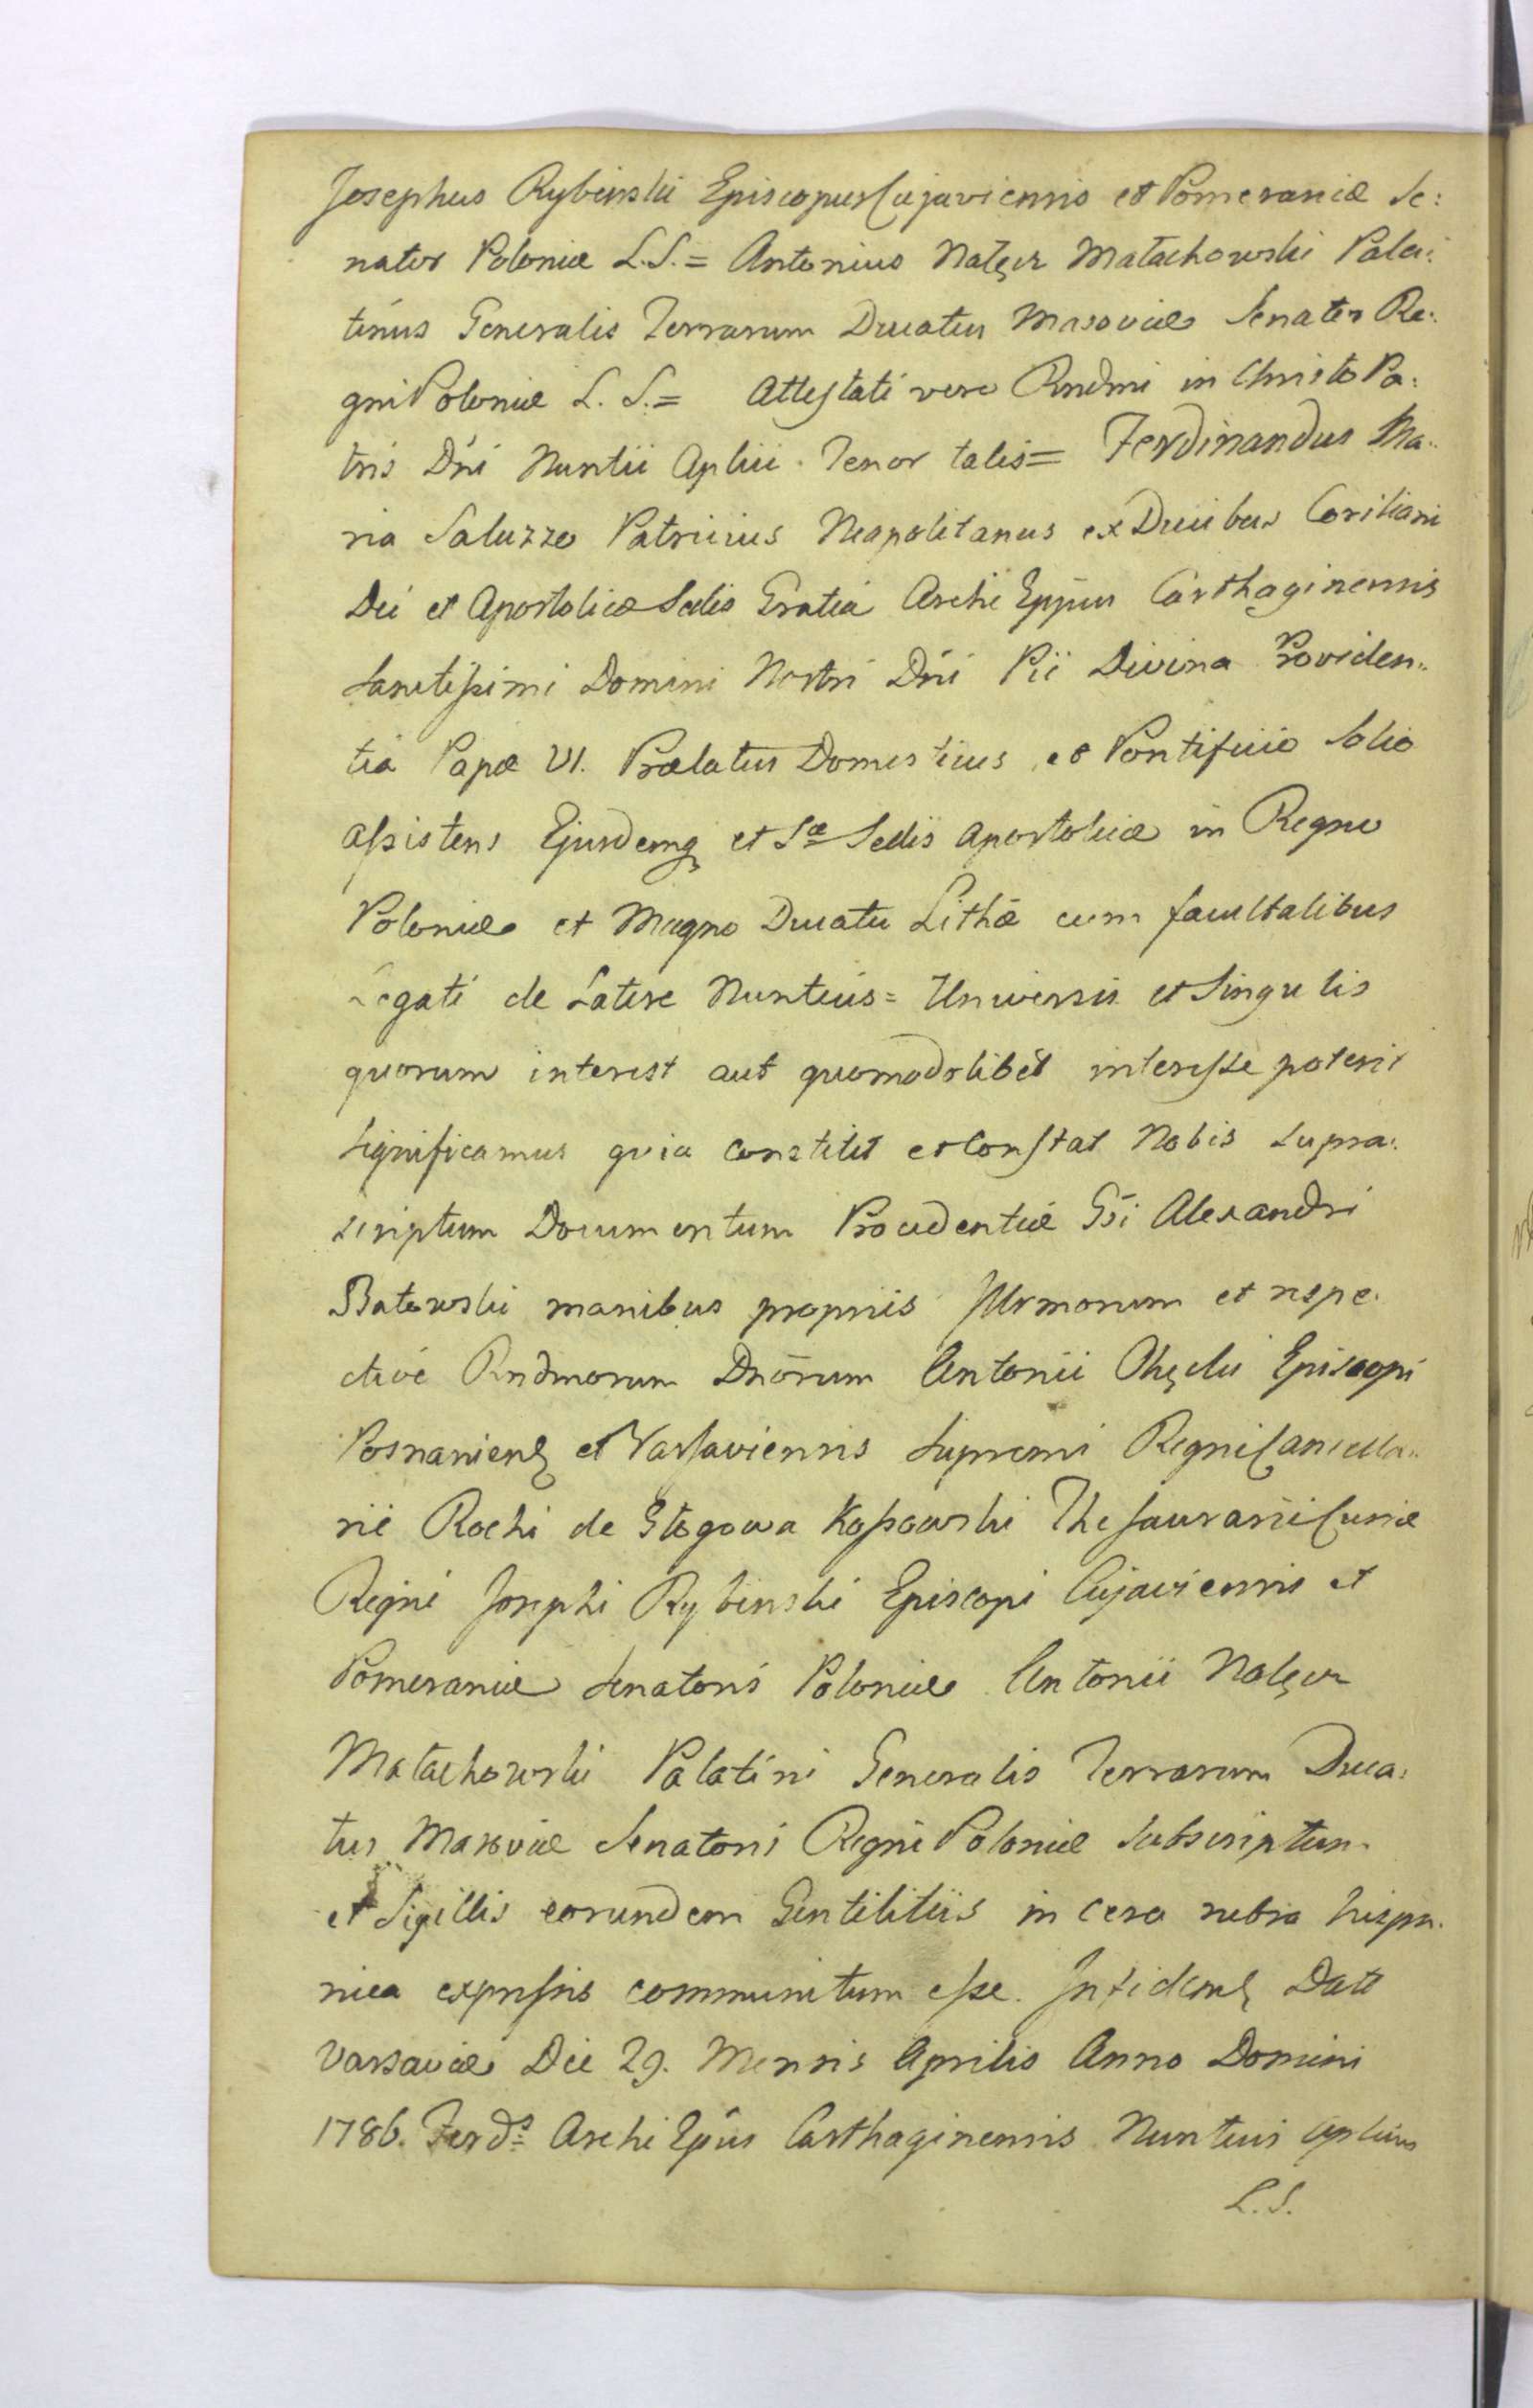 Josephus Rybinski Episcopus Cujaviensis et Pomeraniæ Se:
nator Poloniæ L.S. = Antonius Nałęcz Małachowski Pala:
tinus Generalis Terrarum Ducatus Masoviæ Senator Re:
gni Poloniæ L. S. = Attestati vero Rndmi in Christo Pa:
tris Dni Nuntii Aplici. Tenor talis = Ferdinandus Ma:
ria Saluzzo Patricius Neapolitanus ex Ducibus Coriliani
Dei et Apostolicæ Sedis Gratia Archi Eppus Carthaginensis
Sanctissimi Domini Nostri Dni Pii Divina Providen:
tia Papæ VI. Prælatus Domesticus et Pontificio Solio
assistens Ejusdemq et Sæ Sedis Apostolicæ in Regno
Poloniæ et Magno Ducatu Lithæ cum facultatibus
Legati de Latere Nuntius = Universis et Singulis
quorum interest aut quomodolibet interesse poterit
significamus quia constitit et constat Nobis supra:
scriptum Documentum Procedentiæ Gsi Alexandri
Batowski manibus propriis Illrmorum et respe:
ctive Rndmorum Dnorum Antonii Okęcki Episcopi
Posnaniens et Varsaviensis Supremi Regni Cancella:
rii Rochi de Głogowa Kossowski Thesaurarii Curiæ
Regni Josephi Rybinski Episcopi Cujaviensis et
Pomeraniæ Senatoris Poloniæ Antonii Nałęcz
Małachowski Palatini Generalis Terrarum Duca:
tus Masoviæ Senatoris Regni Poloniæ subscriptum
et Sigillis eorundem Gentilitiis in cera rubra hispa:
nica expressis communitum esse. In fidem Datt
Varsaviæ Die 29. Mensis Aprilis Anno Domini
1786. Ferds Archi Epus Carthaginensis Nuntius Aplicus
L.S.